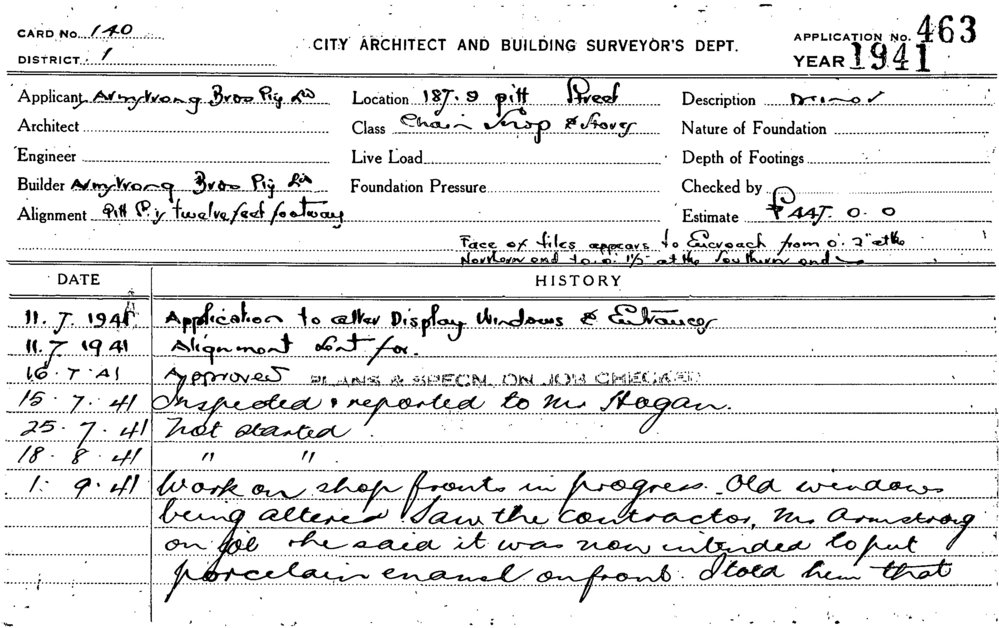 CARD No. 140
DISTRICT. 1
CITY ARCHITECT AND BUILDING SURVEYOR'S DEPT.
APPLICATION No. 463
YEAR 1941
Applicant Armstrong Bros Pty Ld Location 187.9 pitt Street Description minor
Architect Class Chain Shop & Stores Nature of Foundation
Engineer Live Load Depth of Footings
Builder Armstrong Bros Pty Ld Foundation Pressure Checked by
Alignment Pitt St. twelve feet footway Estimate £447. 0. 0
Face of tiles appears to Encroach from 0. 2" at the
Northern end to 0. 0. 1½" at the Southern end
DATE HISTORY
11. 7. 1941 Application to alter Display Windows & Entrances
11. 7 1941 Alignment sent for.
16. 7. 41 Approved PLANS & SPECN. ON JOB CHECKED
15. 7. 41 Inspected & reported to Mr Hogan.
25. 7. 41 Not started.
18. 8. 41 " "
1. 9. 41 Work on shop fronts in progress. Old windows
being altered. Saw the contractor, Mr Armstrong
on job he said it was now intended to put
porcelain enamel on front. I told him that